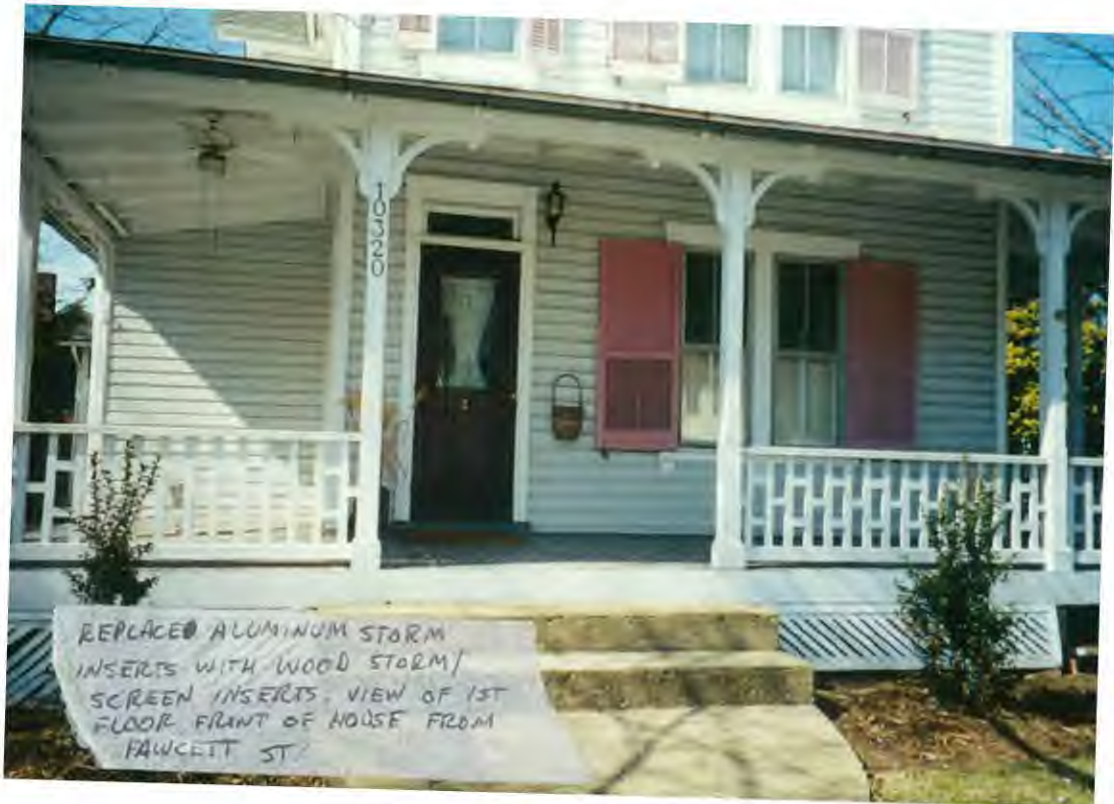 10320
REPLACED ALUMINUM STORM
INSERTS WITH WOOD STORM/
SCREEN INSERTS. VIEW OF 1ST
FLOOR FRONT OF HOUSE FROM
FAWCETT ST